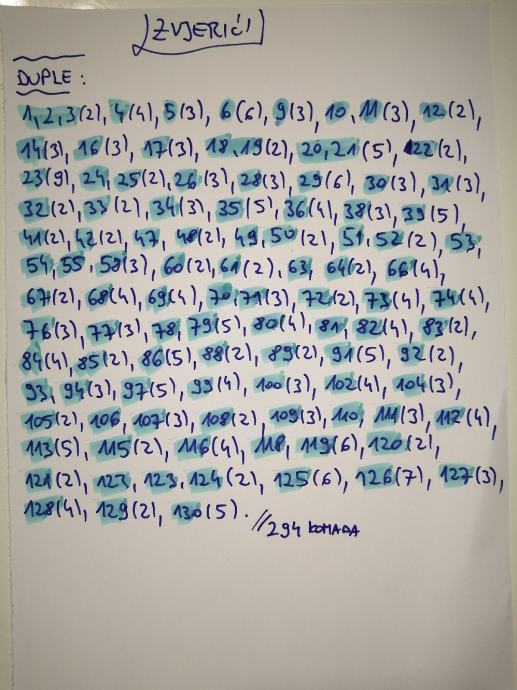 ZVJERIĆI
DUPLE :
1, 2, 3(2), 4(4), 5(3), 6(6), 9(3), 10, 11(3), 12(2),
14(3), 16(3), 17(3), 18, 19(2), 20, 21(5), 22(2),
23(9), 24, 25(2), 26(3), 28(3), 29(6), 30(3), 31(3),
32(2), 33(2), 34(3), 35(5), 36(4), 38(3), 39(5),
41(2), 42(2), 47, 48(2), 49, 50(2), 51, 52(2), 53,
54, 55, 58(3), 60(2), 61(2), 63, 64(2), 66(4),
67(2), 68(4), 69(4), 70, 71(3), 72(2), 73(4), 74(4),
76(3), 77(3), 78, 79(5), 80(4), 81, 82(4), 83(2),
84(4), 85(2), 86(5), 88(2), 89(2), 91(5), 92(2),
93, 94(3), 97(5), 99(4), 100(3), 102(4), 104(3),
105(2), 106, 107(3), 108(2), 109(3), 110, 111(3), 112(4),
113(5), 115(2), 116(4), 118, 119(6), 120(2),
121(2), 123, 124(2), 125(6), 126(7), 127(3),
128(4), 129(2), 130(5). // 294 KOMADA